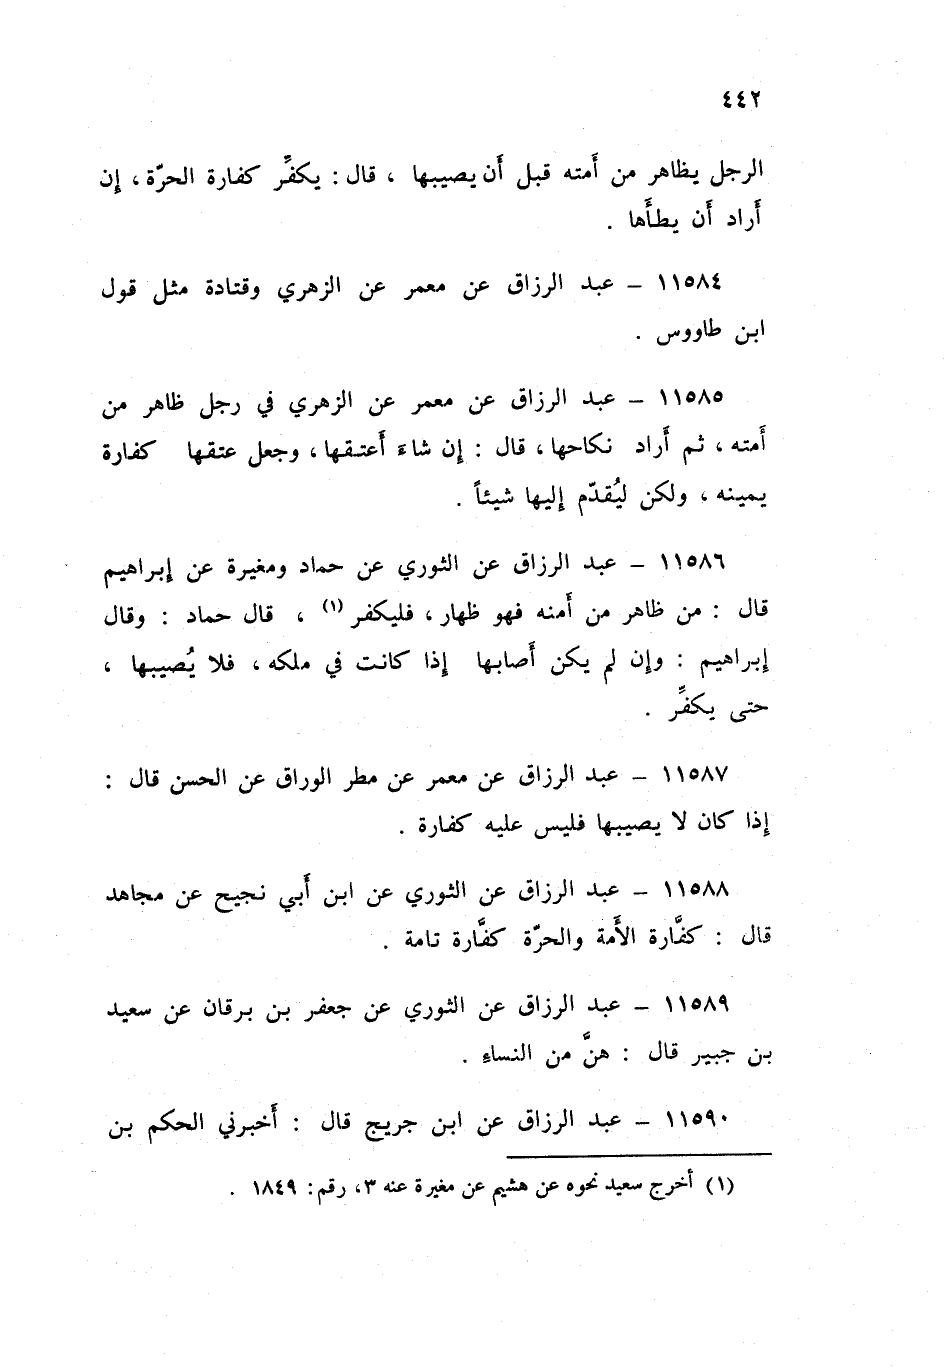 ٤٤٢
الرجل يظاهر من أَمته قبل أَن يصيبها ، قال : يكفِّر كفارة الحرّة ، إِن
أَراد أَن يطأَها .
١١٥٨٤ – عبد الرزاق عن معمر عن الزهري وقتادة مثل قول
ابن طاووس .
١١٥٨٥ – عبد الرزاق عن معمر عن الزهري في رجل ظاهر من
أَمته ، ثم أَراد نكاحها ، قال : إِن شاءَ أَعتقها ، وجعل عتقها كفارة
يمينه ، ولكن ليُقدّم إِليها شيئاً .
١١٥٨٦ – عبد الرزاق عن الثوري عن حماد ومغيرة عن إِبراهيم
قال : من ظاهر من أَمته فهو ظهار ، فليكفر (١) ، قال حماد : وقال
إِبراهيم : وإِن لم يكن أَصابها إِذا كانت في ملكه ، فلا يُصيبها ،
حتى يكفِّر .
١١٥٨٧ – عبد الرزاق عن معمر عن مطر الوراق عن الحسن قال :
إِذا كان لا يصيبها فليس عليه كفارة .
١١٥٨٨ – عبد الرزاق عن الثوري عن ابن أَبي نجيح عن مجاهد
قال : كفَّارة الأَمة والحرّة كفَّارة تامة .
١١٥٨٩ – عبد الرزاق عن الثوري عن جعفر بن برقان عن سعيد
بن جبير قال : هنَّ من النساءِ .
١١٥٩٠ – عبد الرزاق عن ابن جريج قال : أَخبرني الحكم بن
(١) أخرج سعيد نحوه عن هشيم عن مغيرة عنه ٣، رقم: ١٨٤٩ .